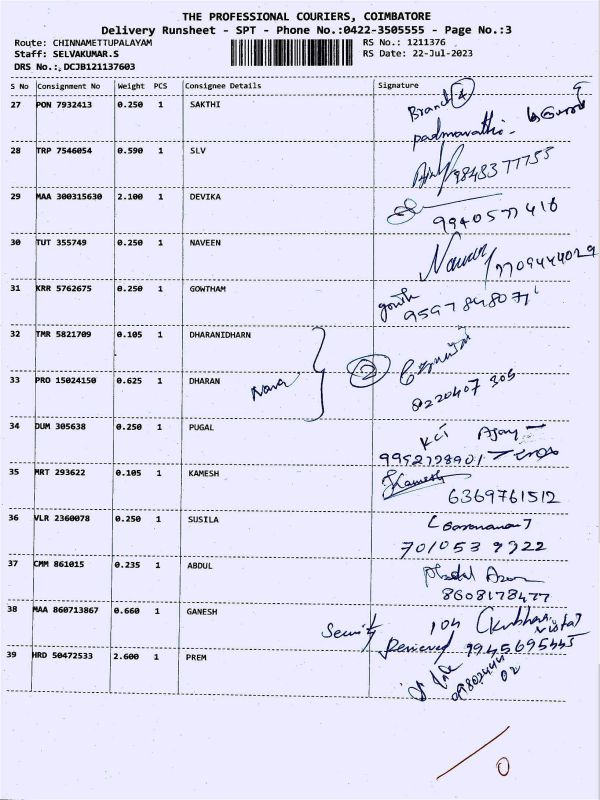 THE PROFESSIONAL COURIERS, COIMBATORE
Delivery Runsheet - SPT - Phone No.:0422-3505555 - Page No.:3
Route: CHINNAMETTUPALAYAM RS No.: 1211376
Staff: SELVAKUMAR.S RS Date: 22-Jul-2023
DRS No.: DCJB121137603
S No Consignment No Weight PCS Consignee Details Signature
27 PON 7932413 0.250 1 SAKTHI Branch 4
padmavathi -
28 TRP 7546054 0.590 1 SLV
9843377755
29 MAA 300315630 2.100 1 DEVIKA
9940577416
30 TUT 355749 0.250 1 NAVEEN
7709444029
31 KRR 5762675 0.250 1 GOWTHAM
9597848071
32 TMR 5821709 0.105 1 DHARANIDHARN
2
33 PRO 15024150 0.625 1 DHARAN
8220407305
34 DUM 305638 0.250 1 PUGAL
Ajay
9952778901
35 MRT 293622 0.105 1 KAMESH Kamesh
6369761512
36 VLR 2360078 0.250 1 SUSILA
7010539922
37 CMM 861015 0.235 1 ABDUL
8608178477
38 MAA 860713867 0.660 1 GANESH 104
Security Received 9945695445
39 HRD 50472533 2.600 1 PREM
02
0